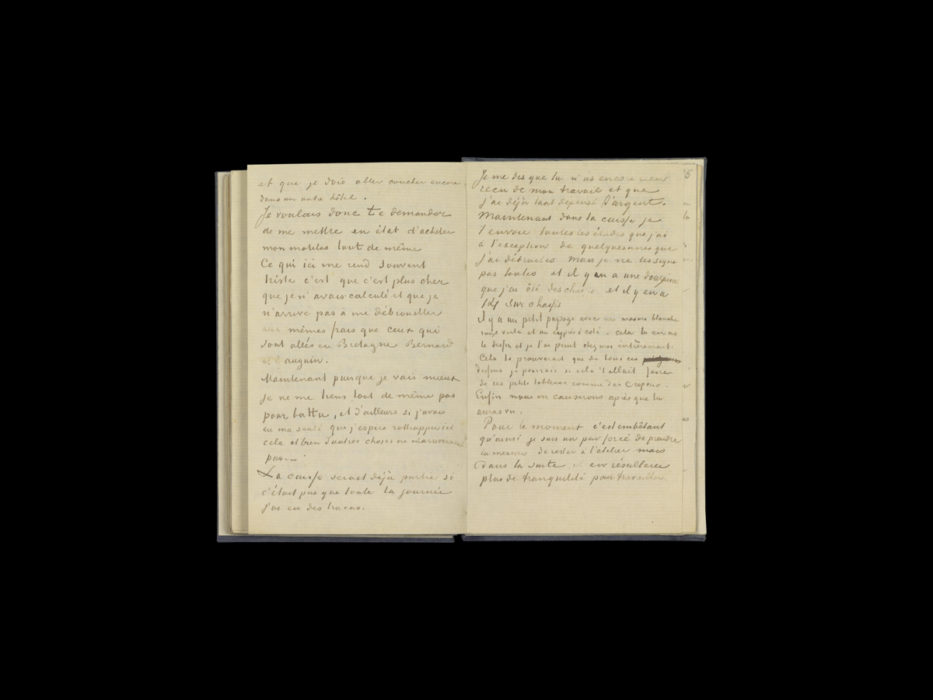 et que je dois aller coucher encore
dans un autre hôtel.
Je voulais donc te demander
de me mettre en état d'acheter
mon mobilier tout de même
Ce qui ici me rend souvent
triste c'est que c'est plus cher
que je n'avais calculé et que je
n'arrive pas à me débrouiller
aux mêmes frais que ceux qui
sont allés en Bretagne Bernard
et Gauguin.
Maintenant puisque je vais mieux
je ne me tiens tout de même pas
pour battu, et d'ailleurs si j'avais
eu ma santé que j'espère rattrapper ici
cela et bien d'autres choses ne m'arriveraient
pas.
La caisse serait déjà partie si
c'était pas que toute la journée
j'ai eu des tracas.
5
Je me dis que tu n'as encore rien
reçu de mon travail et que
j'ai déjà tant dépensé d'argent.
Maintenant dans la caisse je
t'envoie toutes les études que j'ai
à l'exception de quelques unes que
j'ai détruites mais je ne les signe
pas toutes et il y en a une douzaine
que j'ai ôté des chassis et il y en a
14 sur chassis
Il y a un petit paysage avec une masure blanche
rouge verte et un cyprès à côté. cela tu en as
le dessin et je l'ai peint chez moi entièrement.
Cela te prouverait que de tous ces
dessins je pourrais si cela t'allait faire
de ces petits tableaux comme des crepons.
Enfin nous en causerons après que tu
auras vu.
Pour le moment c'est embêtant
qu'ainsi je suis un peu forcé de prendre
la mesure de rester à l'atelier mais
dans la suite il en résultera
plus de tranquillité pour travailler